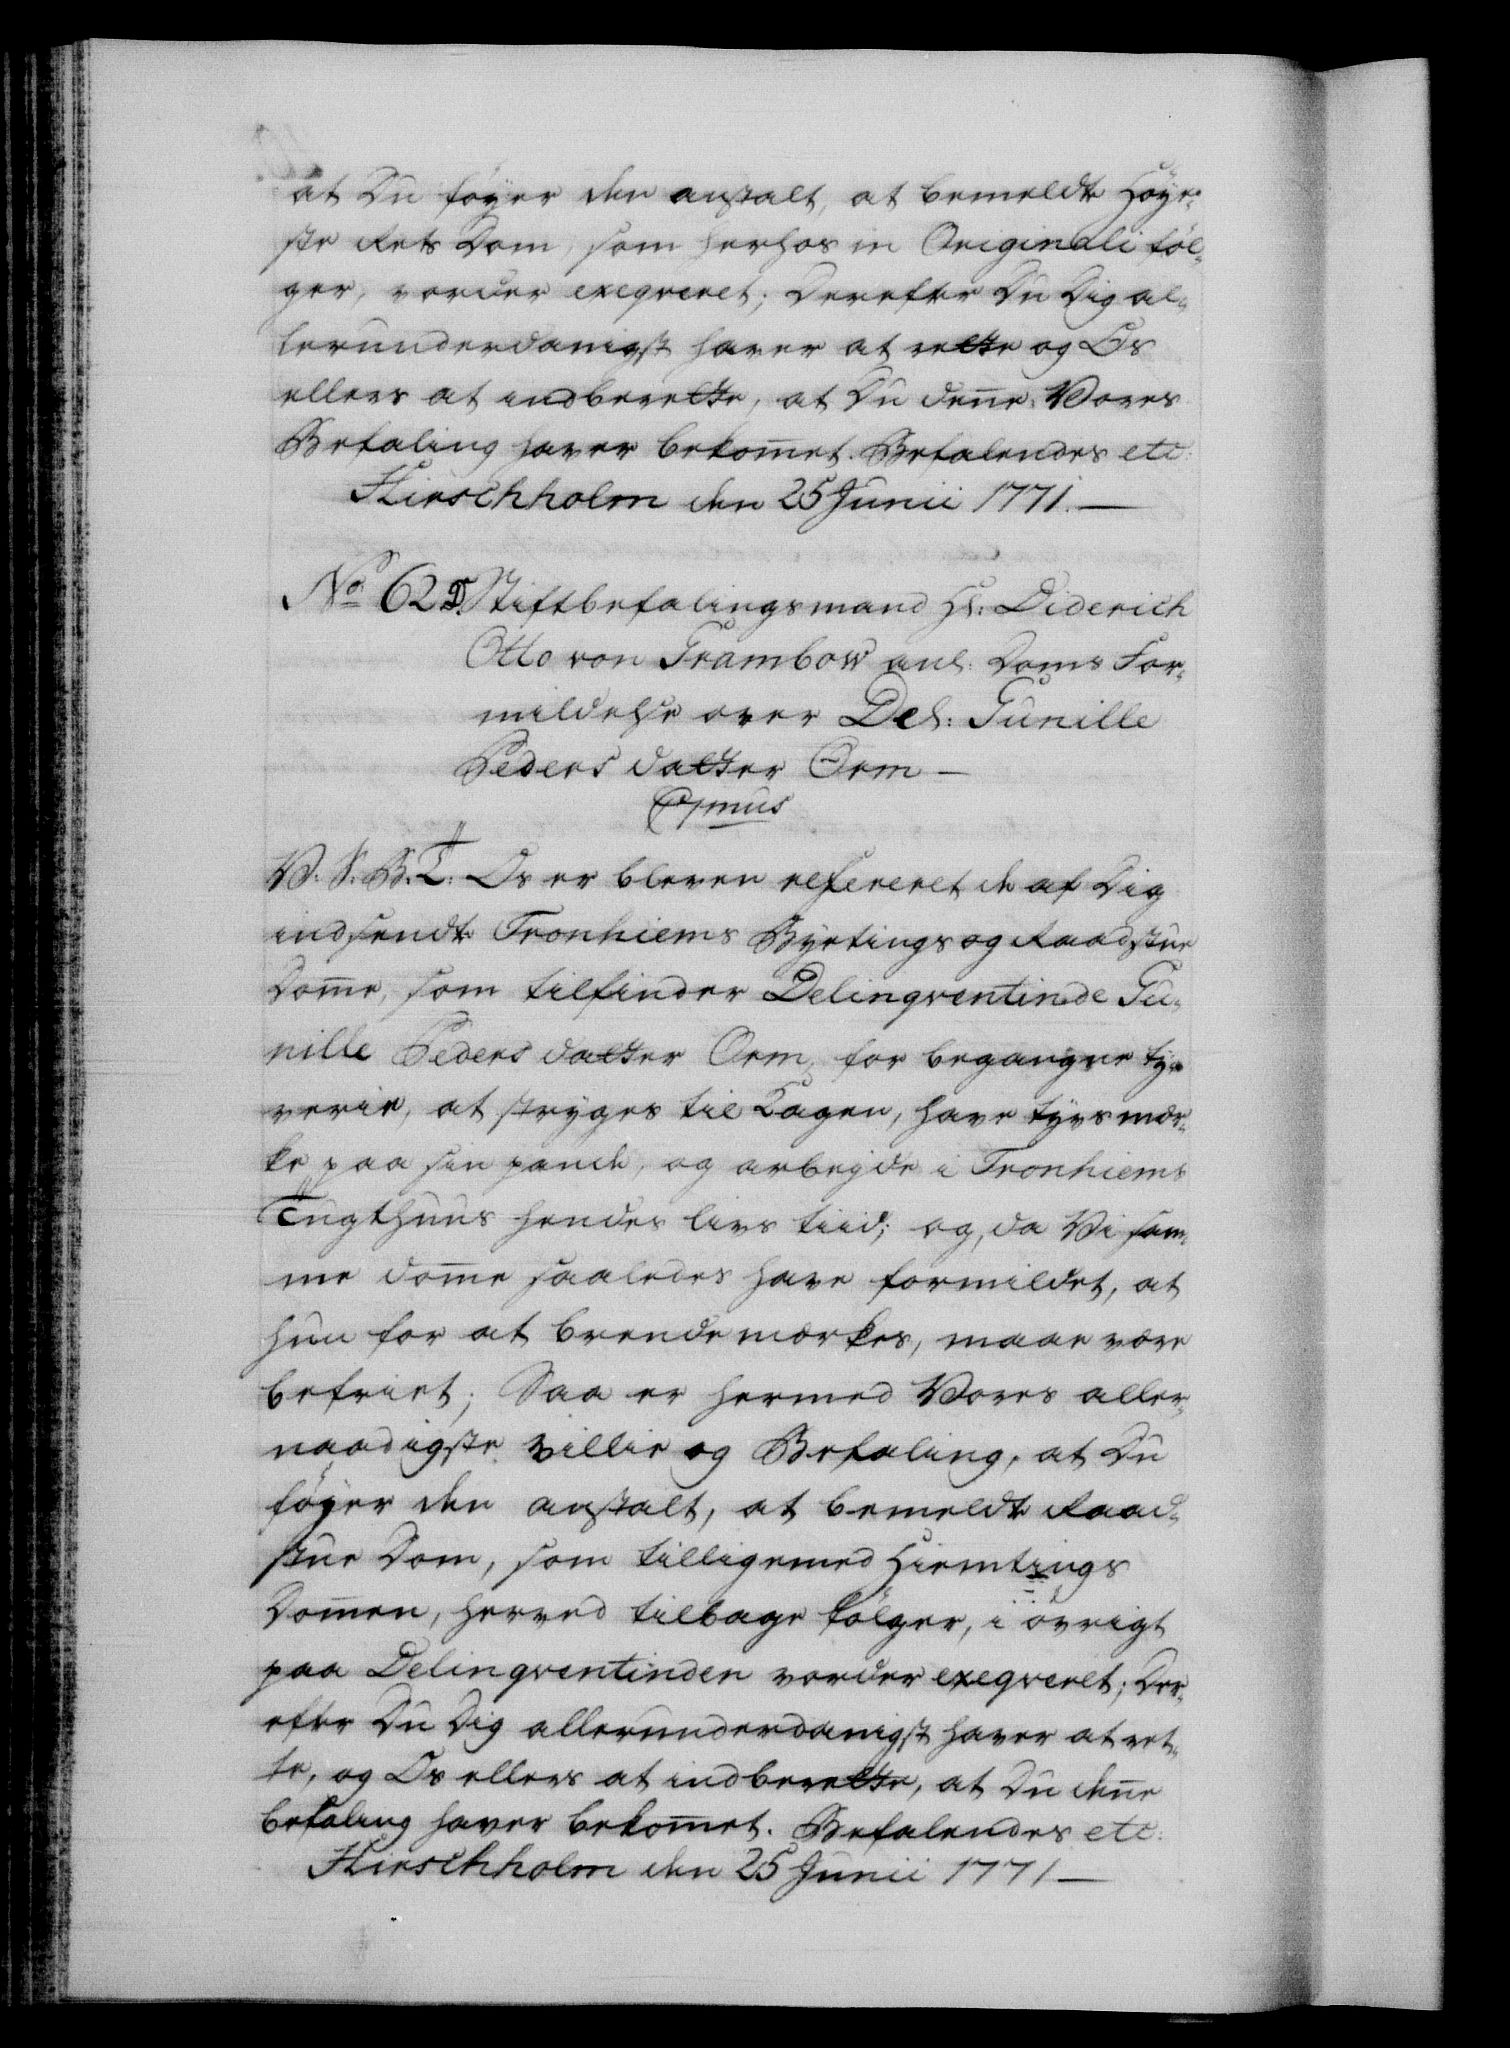 at Du föyer den anstalt, at bemeldte Höye-
ste Rets Dom, som herhos in Originali föl-
ger, vorder exeqveret; Derefter Du Dig al-
lerunderdanigst haver at rette og Os
ellers at indberette, at Du deñe Vores
Befaling haver bekom̃et. Befalendes etc:
Hirschholm den 25 Junii 1771.—
No 62 D. Stiftbefalingsmand Hr: Diderich
Otto von Grambow anl: Doms For-
mildelse over Del: Gunille
Peders datter Orm—
C7mus
V. S. B. T. Os er bleven refereret de af Dig
indsendte Tronhiems Byetings og Raadstue
Dom̃e, som tilfinder Delinqventinde Gu-
nille Peders datter Orm, for begangne ty-
verie, at stryges til Kagen, have tyvs mær-
ke paa sin pande, og arbejde i Tronhiems
Tugthuus hendes livs tiid; og, da Vi sam-
me dom̃e saaledes have formildet, at
hun for at brende mærkes, maae være
befriet; Saa er hermed Vores aller-
naadigste villie og Befaling, at Du
föyer den anstalt, at bemeldte Raad-
stue Dom, som tilligemed Hiemtings
Dom̃en, herved tilbage fölger, i övrigt
paa Delinqventinden vorder exeqveret; Der-
efter Du Dig allerunderdanigst haver at ret-
te, og Os ellers at indberette, at Du deñe
befaling haver bekom̃et. Befalendes etc:
Hirschholm den 25 Junii 1771—